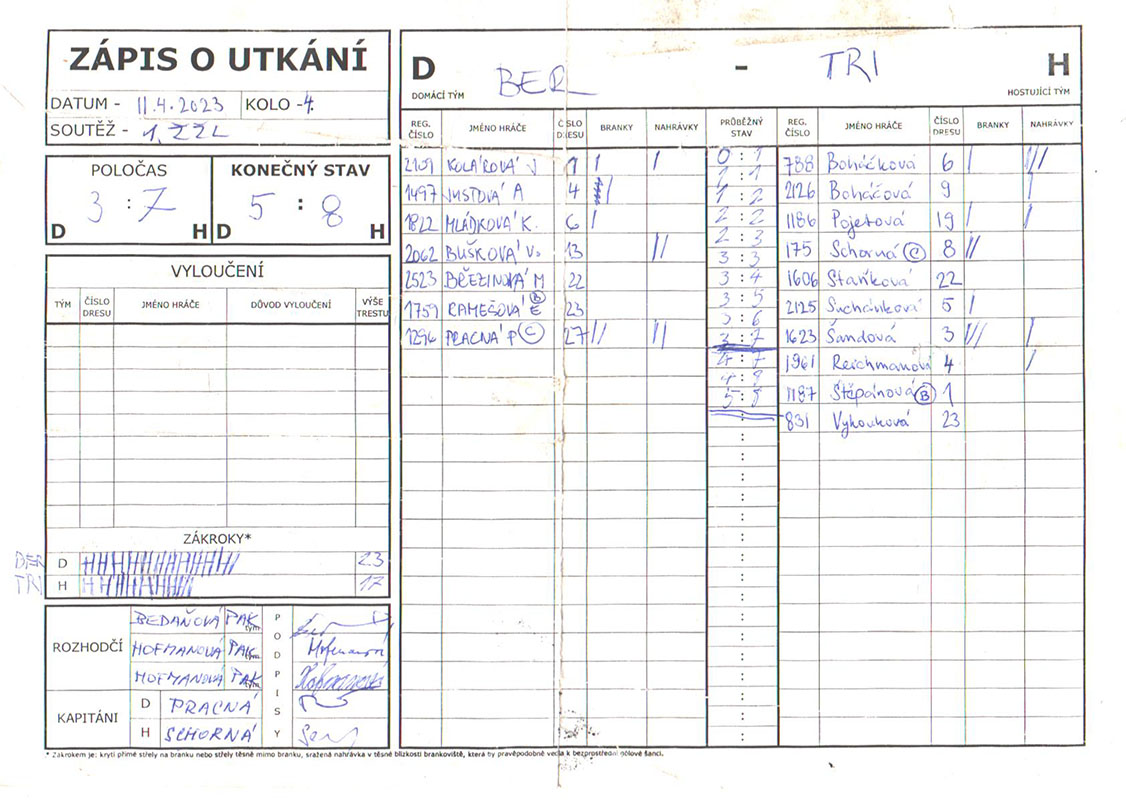 ZÁPIS O UTKÁNÍ
DATUM - 11.4.2023 KOLO - 4.
SOUTĚŽ - 1. ŽZL
POLOČAS KONEČNÝ STAV
3 : 7 5 : 8
D H D H
VYLOUČENÍ
TÝM ČÍSLO DRESU JMÉNO HRÁČE DŮVOD VYLOUČENÍ VÝŠE TRESTU
ZÁKROKY*
BER D 23
TRI H 17
ROZHODČÍ
BEDAŇOVÁ PAK tým
HOFMANOVÁ PAK tým
HOFMANOVÁ PAK tým
PODPISY
KAPITÁNI
D PRACNÁ
H SCHORNÁ
D BER - TRI H
DOMÁCÍ TÝM HOSTUJÍCÍ TÝM
REG. ČÍSLO JMÉNO HRÁČE ČÍSLO DRESU BRANKY NAHRÁVKY PRŮBĚŽNÝ STAV REG. ČÍSLO JMÉNO HRÁČE ČÍSLO DRESU BRANKY NAHRÁVKY
2109 KOLÁŘOVÁ J 1 / / 0 : 1 788 Boháčková 6 / ///
1497 JUSTOVÁ A 4 / 1 : 1 2126 Boháčová 9 /
1 : 2
1822 MLÁDKOVÁ K. 6 / 2 : 2 1186 Pojetová 19 / /
2062 BUŠKOVÁ V. 13 // 2 : 3 175 Schorná C 8 //
3 : 3
2523 BŘEZINOVÁ M 22 3 : 4 1606 Staňková 22
1759 RAMEŠOVÁ E B 23 3 : 5 2125 Suchánková 5 /
3 : 6
1296 PRACNÁ P C 27 // // 3 : 7 1623 Šandová 3 /// /
4 : 7 1961 Reichmanová 4 /
4 : 8
5 : 8 1187 Štěpánová B 1
831 Vykouková 23
* Zákrokem je: krytí přímé střely na branku nebo střely těsně mimo branku, sražená nahrávka v těsné blízkosti brankoviště, která by pravěpodobně vedla k bezprostřední gólové šanci.